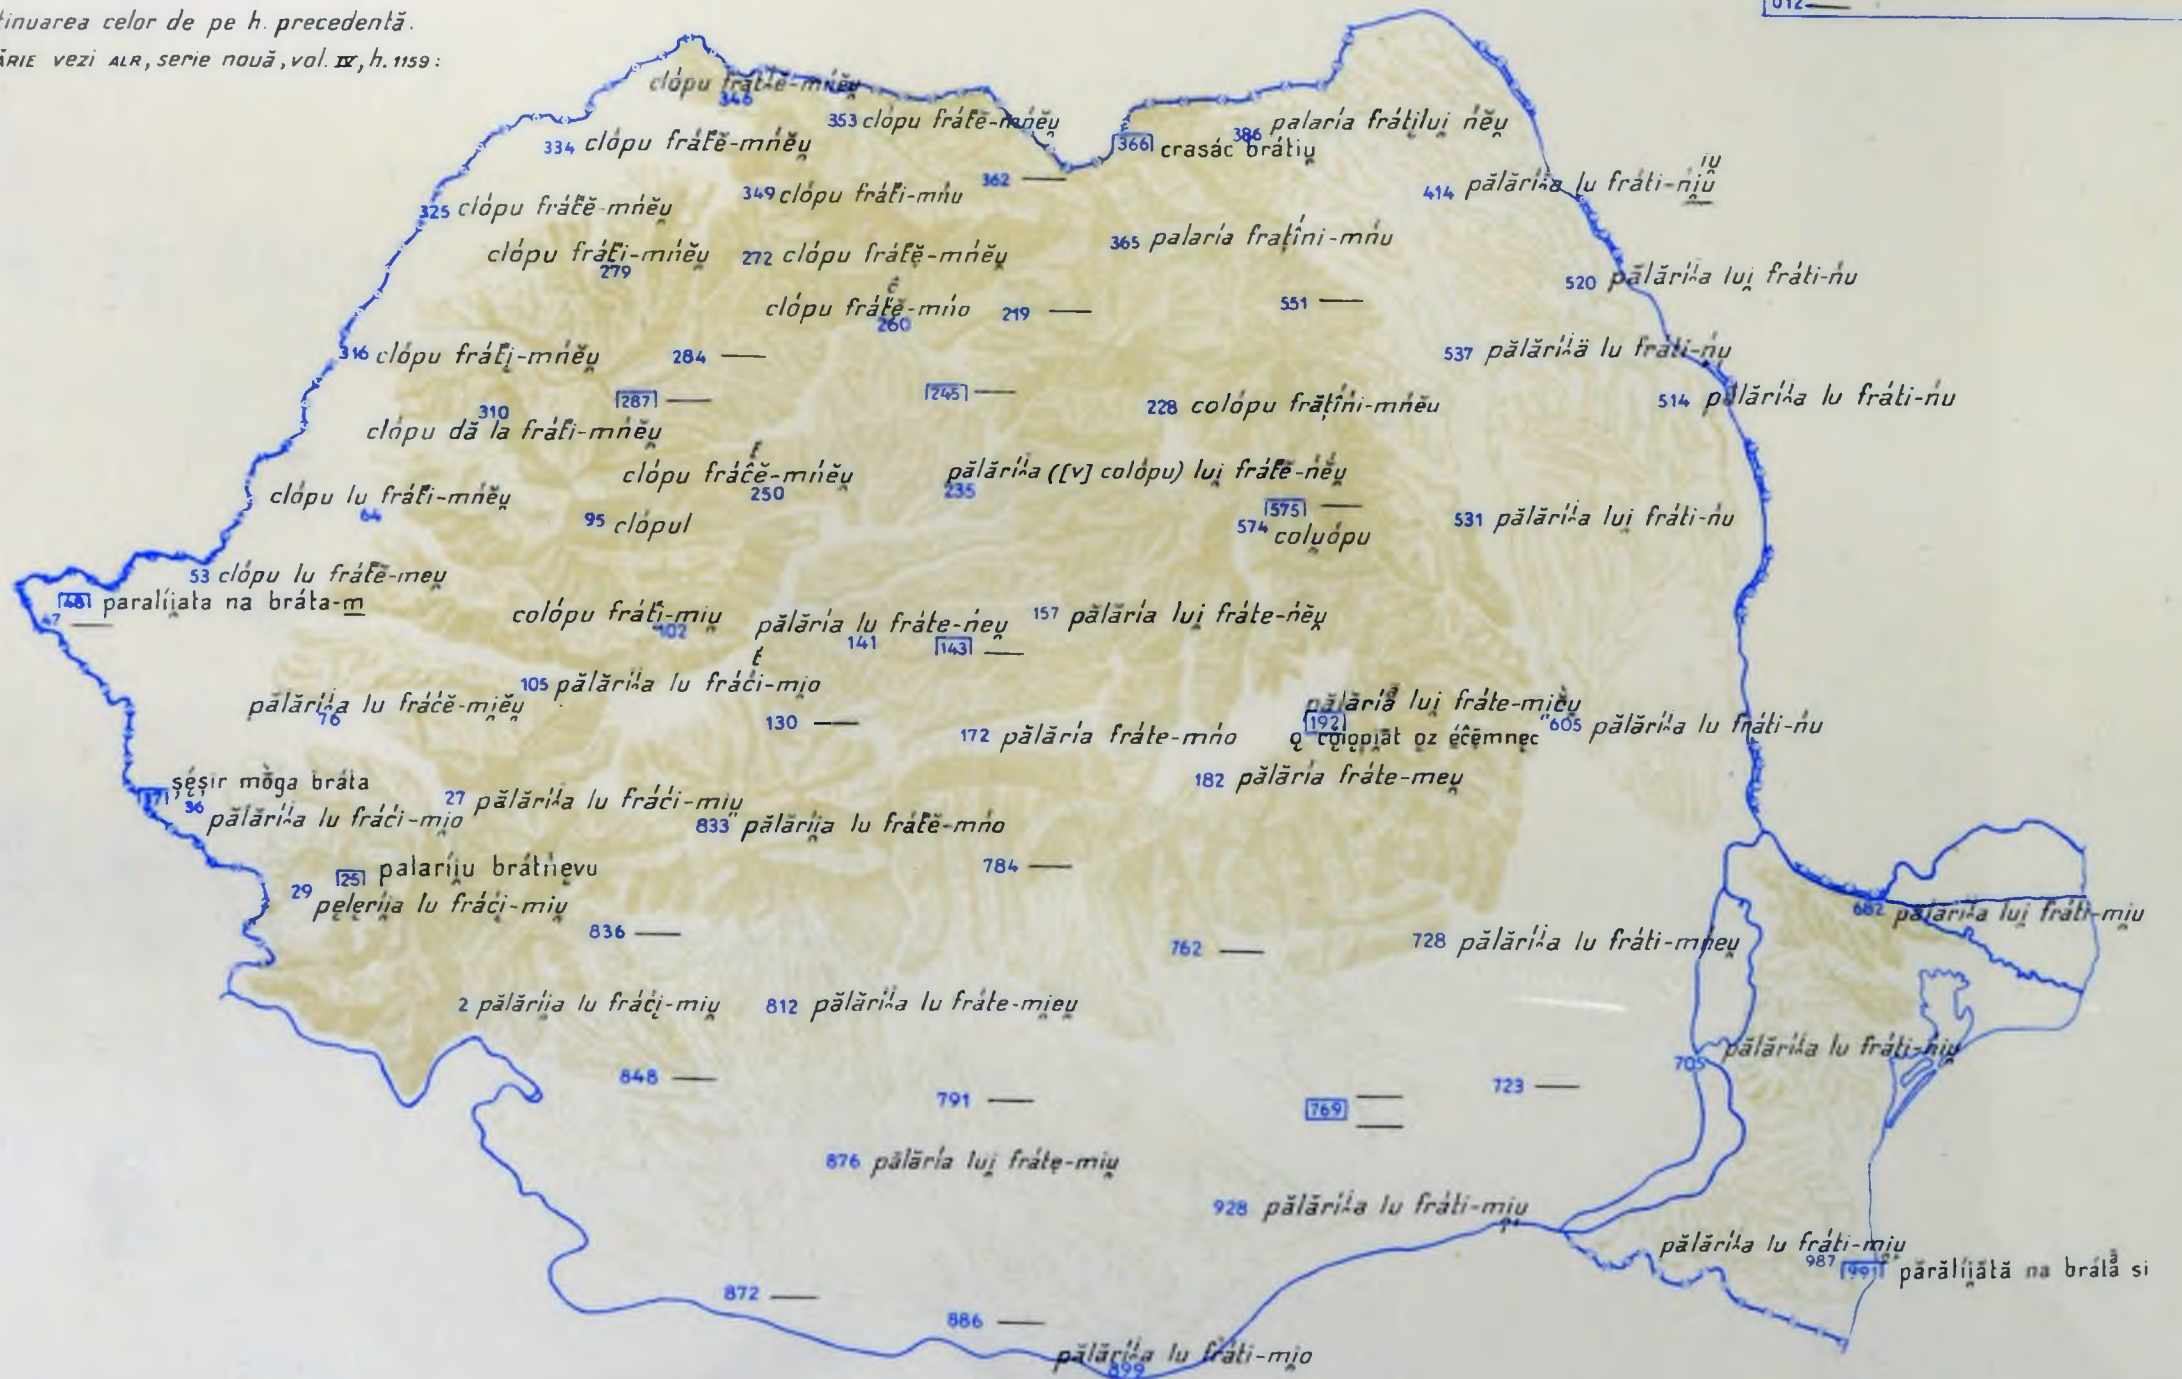 tinuarea celor de pe h. precedentă.
ĂRIE vezi ALR, serie nouă, vol. IV, h. 1159:
012 —
clópu frátĕ-mńĕu̯
346
353 clópu frát́ĕ-mńĕu̯
386 palaría frátilui̯ ńĕu̯
334 clópu frát́ĕ-mńĕu̯
366 crasác brátiu̯
362 —
349 clópu frát́i-mńu
414 pălăríi̯a lu fráti-ńi̯ŭ
iu̯
325 clópu frát́ĕ-mńĕu̯
365 palaría frațîni-mńu
clópu frát́i-mńĕu̯
279
272 clópu frát́ę̆-mńĕu̯
520 pălăríi̯a lui̯ fráti-ńu
clópu frát́ę̆-mńo
260
219 —
551 —
316 clópu frát́i̯-mńĕu̯
284 —
537 pălăríi̯ä lu fráti-ńu̯
287 —
245 —
228 colópu frățîni-mńĕu
514 pălăríi̯a lu fráti-ńu
310
clópu dă la frát́i-mńĕu̯
clópu frác̑ĕ-mńĕu̯
250
pălăríi̯a ([v] colópu) lui̯ frát́ĕ-ńĕu̯
235
clópu lu frát́i-mńĕu̯
64
95 clópul
575 —
574 colu̯ópu
531 pălăríi̯a lui̯ fráti-ńu
53 clópu lu frát́ĕ-meu̯
48 paralíi̯ata na bráta-m
47 —
colópu frát́i-miu̯
102
pălăría lu fráte-ńeu̯
141
157 pălăría lui̯ fráte-ńĕu̯
143 —
105 pălăríi̯a lu fráći-mi̯o
pălăríi̯a lu fráćĕ-mi̯ĕu̯
76
130 —
172 pălăría fráte-mńo
pălăríă lui̯ fráte-mi̯ĕu̯
192
605 pălăríi̯a lu fráti-ńu
182 pălăría fráte-meu̯
șẹ́șir mòga bráta
37
36 pălăríi̯a lu fráći-mi̯o
27 pălăríi̯a lu fráći-miu̯
833 pălăríi̯a lu frát́ĕ-mńo
784 —
25 palaríi̯u brátńẹvu
29 pẹlẹríi̯a lu fráći̯-miu̯
836 —
762 —
728 pălăríi̯a lu fráti-mńeu̯
682 pălăríi̯a lui̯ fráti-miu
2 pălăríi̯a lu fráći̯-miu̯
812 pălăríi̯a lu fráte-mi̯eu̯
705 pălăríi̯a lu fráti-ńiu̯
848 —
791 —
769 —
—
723 —
876 pălăría lui̯ frátẹ-miu̯
928 pălăríi̯a lu fráti-miu̯
pălăríi̯a lu fráti-miu̯
987
991 părălíi̯ătă na brátă si
872 —
886 —
pălăríi̯a lu fráti-mi̯o
899